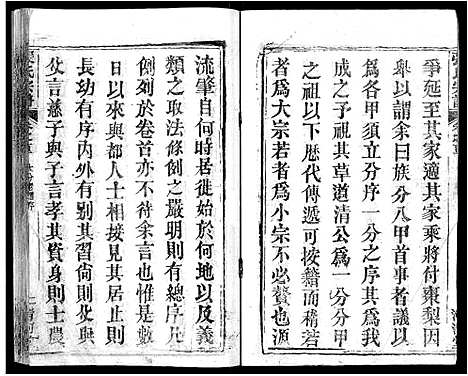 爭延至其家適其家乘將付棗梨因
舉以諗予曰族分八甲首者議以
爲各甲須立分序一分之序其責
成之予視其草道清公爲一分分甲
之祖以下歷代傳遞可按籍而稽若
者爲大宗若者爲小宗不必贅也源
流肇自何時居徙始於何地以及義
類之取法條創之嚴明則有總序凡
例列於卷首亦不待余言也予數十
日以來與都人士相接見其居止則
長幼有序內外有別其習尚則父與
父言慈子與子言孝其資身則士農